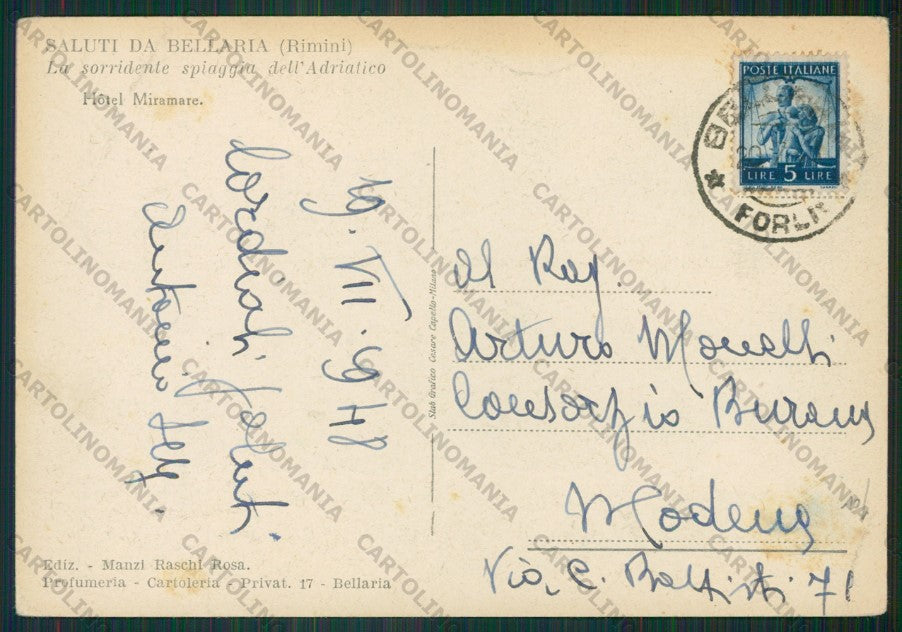 SALUTI DA BELLARIA (Rimini)
La sorridente spiaggia dell'Adriatico
Hôtel Miramare.
19. VII. 948
Cordiali saluti
Antonio
Stab. Grafico Cesare Capello - Milano
POSTE ITALIANE
LIRE 5 LIRE
FORLI
Al Rag.
Arturo Monelli
Consorzio Burana
Modena
Via C. Battisti 71
Ediz. - Manzi Raschi Rosa.
Profumeria - Cartoleria - Privat. 17 - Bellaria
CARTOLINOMANIA